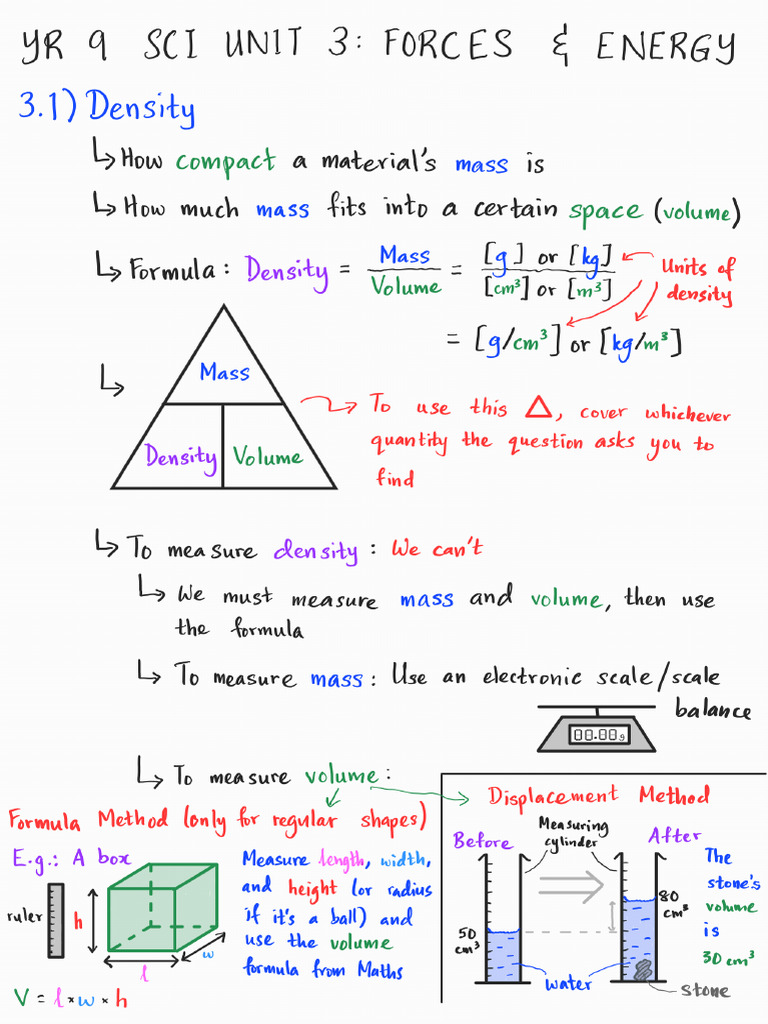 YR 9 SCI UNIT 3: FORCES & ENERGY
3.1) Density
↳ How compact a material's mass is
↳ How much mass fits into a certain space (volume)
↳ Formula: Density = Mass / Volume = [g] or [kg] / [cm³] or [m³]
Units of
density
= [g/cm³] or [kg/m³]
↳
Mass
Density Volume
To use this △, cover whichever
quantity the question asks you to
find
↳ To measure density: We can't
↳ We must measure mass and volume, then use
the formula
↳ To measure mass: Use an electronic scale/scale
balance
00.00g
↳ To measure volume:
Formula Method (only for regular shapes)
E.g.: A box
ruler
h
l
w
V = l × w × h
Measure length, width,
and height (or radius
if it's a ball) and
use the volume
formula from Maths
Displacement Method
Before
Measuring
cylinder
After
50
cm³
80
cm³
water
stone
The
stone's
volume
is
30 cm³